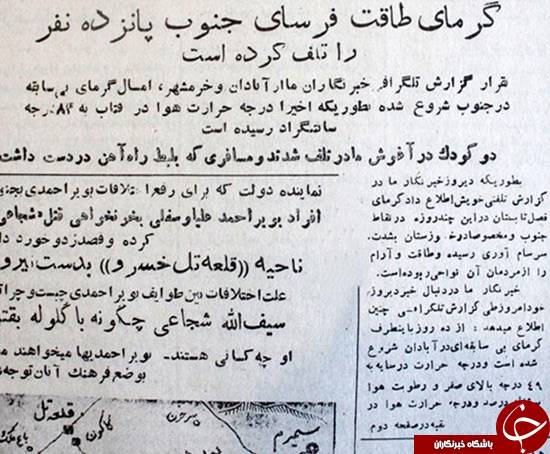 گرمای طاقت فرسای جنوب پانزده نفر
را تلف کرده است
بقرار گزارش تلگرافی خبرنگاران ما از آبادان و خرمشهر، امسال گرمای بی‌سابقه
درجنوب شروع شده بطوریکه اخیرا درجه حرارت هوا در آفتاب به ۸۴درجه
سانتیگراد رسیده است
دو کودك در آغوش مادر تلف شدند و مسافری که بلیط راه‌آهن در دست داشت
بطوریکه دیروز خبرنگار ما در
گزارش تلفنی خویش اطلاع داد گرمای
فصل تابستان در این چند روزه در نقاط
جنوب و مخصوصا در خوزستان بشدت
سرسام آوری رسیده و طاقت و آرام
را از مردمان آن نواحی ربوده است.
خبرنگار ما در دنبال خبر دیروز
خود امروز طی گزارش تلگرافی چنین
اطلاع میدهد: از ده روز باینطرف
گرمای بی سابقه‌ای در آبادان شروع
شده است و درجه حرارت در سایه به
۴۹ درجه بالای صفر و رطوبت هوا
درصد و درجه حرارت هوا در
بقیه در صفحه دوم
نماینده دولت که برای رفع اختلافات بویراحمدی
افراد بویراحمد علیا و سفلی بخونخواهی قتل شجاعی
کرده و قصد زد و خورد
ناحیه ((قلعه تل خسرو)) بدست
علت اختلافات بین طوایف بویراحمدی چیست و چرا
سیف‌الله شجاعی چگونه با گلوله
او چه کسانی هستند- بویراحمدیها میخواهند
بوضع فرهنگ آنان توجه
قلعه تل
کاکان
سرحن
سمیرم
باغ ملك
باشگاه خبرنگاران